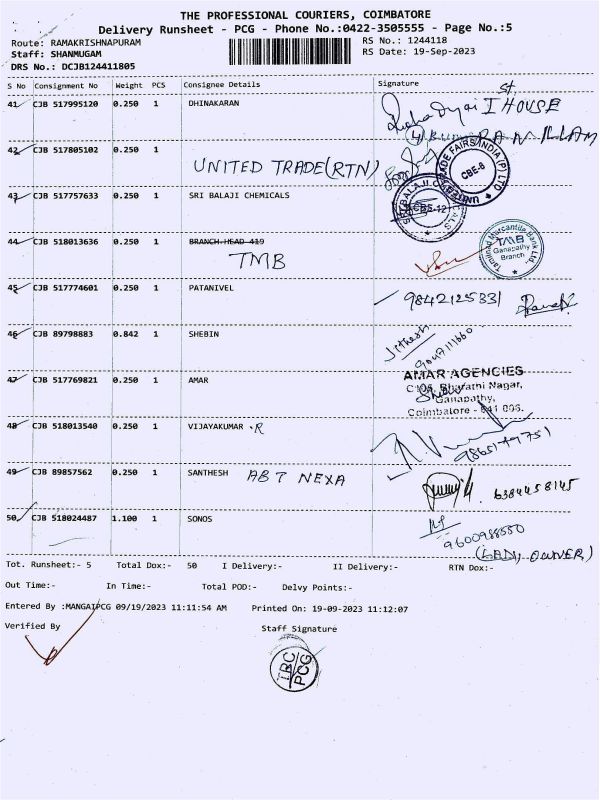 THE PROFESSIONAL COURIERS, COIMBATORE
Delivery Runsheet - PCG - Phone No.:0422-3505555 - Page No.:5
Route: RAMAKRISHNAPURAM RS No.: 1244118
Staff: SHANMUGAM RS Date: 19-Sep-2023
DRS No.: DCJB124411805
S No Consignment No Weight PCS Consignee Details Signature
41 CJB 517995120 0.250 1 DHINAKARAN
I HOUSE
42 CJB 517805102 0.250 1
UNITED TRADE (RTN)
UNITED TRADE FAIRS INDIA (P) LTD
CBE-6
43 CJB 517757633 0.250 1 SRI BALAJI CHEMICALS
SRI BALAJI CHEMICALS
CBS-12
44 CJB 518013636 0.250 1 BRANCH.HEAD 419
TMB
Tamilnad Mercantile Bank Ltd.
TMB
Ganapathy
Branch
45 CJB 517774601 0.250 1 PATANIVEL
9842125331
46 CJB 89798883 0.842 1 SHEBIN
Jithesh
47 CJB 517769821 0.250 1 AMAR
AMAR AGENCIES
Bharathi Nagar,
Ganapathy,
Coimbatore - 641 006.
48 CJB 518013540 0.250 1 VIJAYAKUMAR .R
49 CJB 89857562 0.250 1 SANTHESH ABT NEXA
6384458145
50 CJB 518024487 1.100 1 SONOS
9600988550
OWNER)
Tot. Runsheet:- 5 Total Dox:- 50 I Delivery:- II Delivery:- RTN Dox:-
Out Time:- In Time:- Total POD:- Delvy Points:-
Entered By :MANGAIPCG 09/19/2023 11:11:54 AM Printed On: 19-09-2023 11:12:07
Verified By Staff Signature
TBC
PCG